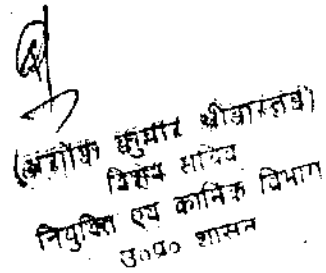 (अशोक कुमार श्रीवास्तव)
विशेष सचिव
नियुक्ति एवं कार्मिक विभाग
उ०प्र० शासन